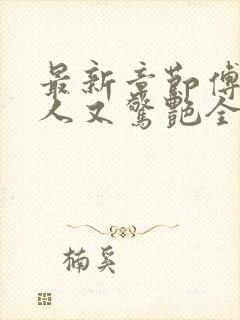 最新章節傅
人又驚艷全
楠奚